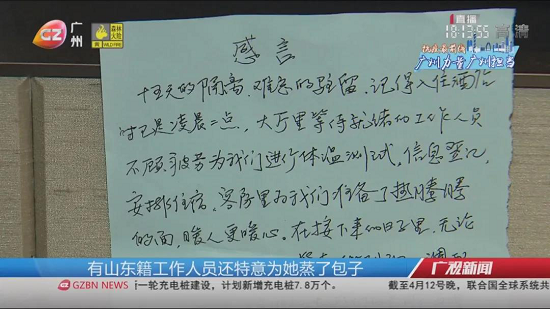 广州
森林火险
黄 WILDFIRE
直播
18:13:55
高清
抗疫最前线
广州力量 广州担当
感言
十五天的隔离,难忘的驻留,记得入住酒店
时已是凌晨二点,大厅里等待就绪的工作人员
不顾疲劳为我们进行体温测试,信息登记,
安排住宿,客房里为我们准备了热腾腾
的面,暖人更暖心。在接下来的日子里,无论
有山东籍工作人员还特意为她蒸了包子
广视新闻
GZBN NEWS
一轮充电桩建设,计划新增充电桩7.8万个。
截至4月12号晚,联合国全球系统共